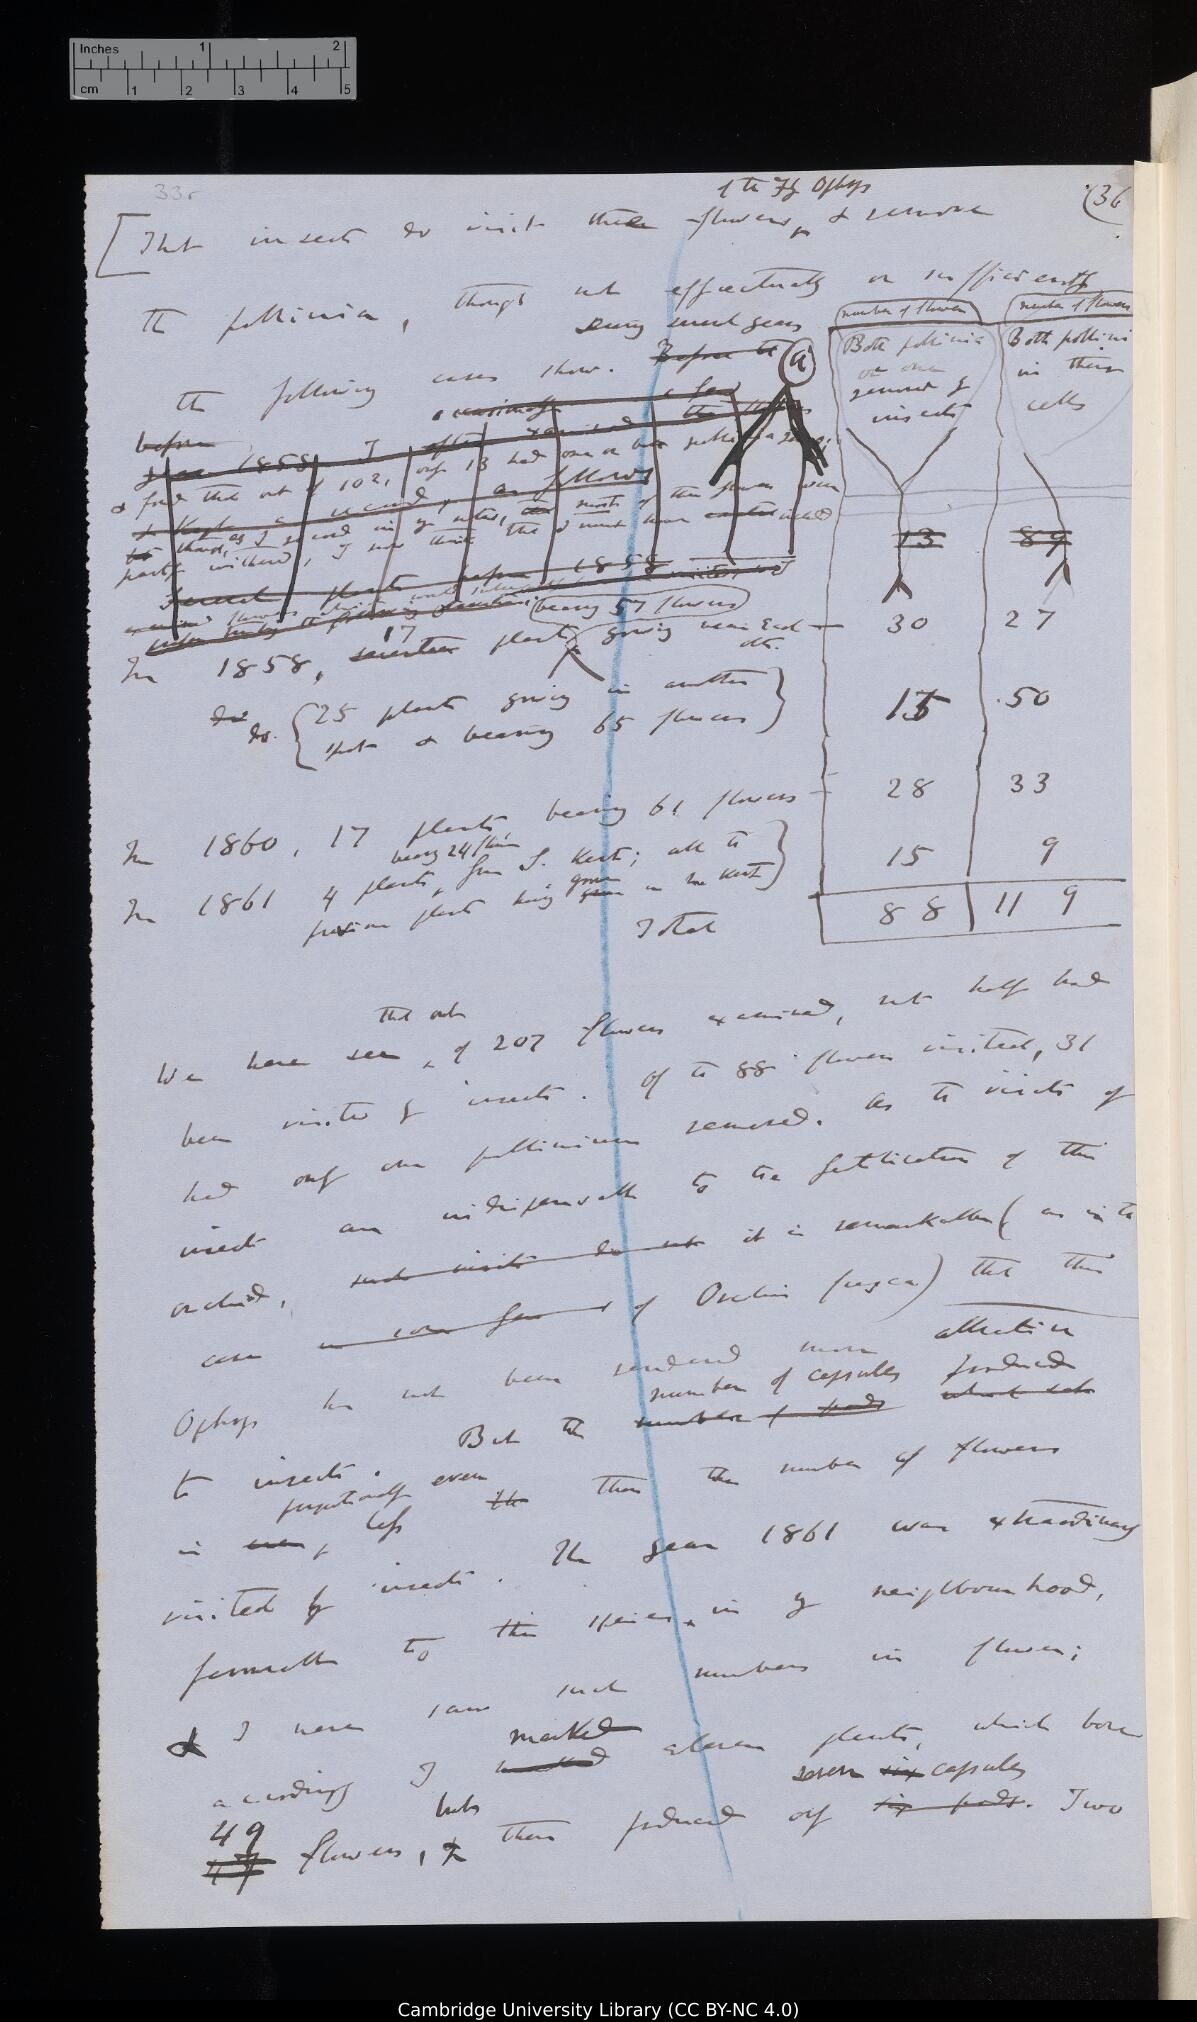 Inches 1 2
cm 1 2 3 4 5
33r
of the Fly Ophrys
(36
[That insects do visit these flowers, & remove
the pollinia, though not effectually or sufficiently
the following cases show. Before the
during several years
(a)
before
occasionally a few
year 1858 I often examined the flowers
& found that out of 102, only 13 had one or both pollinia
& kept a record, as follows
as I record in my notes, most of the flowers were
partly withered, I now think that I must have
Several plants before 1858
In 1858, seventeen 17 plants, bearing 57 flowers growing near each oth.
do do. { 25 plants growing in another
spot & bearing 65 flowers }
In 1860, 17 plants, bearing 61 flowers
In 1861 4 plants, from S. Kent; all the
bearing 24 flowers
previous plants having grown in N. Kent }
Total
number of flowers
Both pollinia
or one
removed by
insects
13
30
15
28
15
88
number of flowers
Both pollinia
in their
cells
89
27
50
33
9
119
We have seen, that out of 207 flowers examined, not half had
been visited by insects. Of the 88 flowers visited, 31
had only one pollinium removed. As the visits of
insects are indispensable to the fertilisation of this
orchid, such visits do not it is remarkable (as in the
case in some few of Orchis fusca) that this
Ophrys has not been rendered more attractive
to insects. But the number of pods number of capsules produced
is even, proportionally even less than the number of flowers
visited by insects. The year 1861 was extraordinary
favourable to this species, in my neighbourhood,
& I never saw such numbers in flower;
accordingly I marked marked eleven plants, which bore
49 flowers, but these produced only six pods. seven six capsules Two
Cambridge University Library (CC BY-NC 4.0)